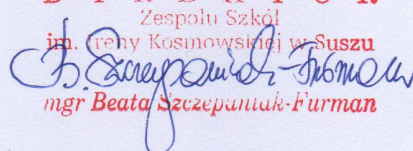 DYREKTOR
Zespołu Szkół
im. Ireny Kosmowskiej w Suszu
B. Szczepaniak-Furman
mgr Beata Szczepaniak-Furman